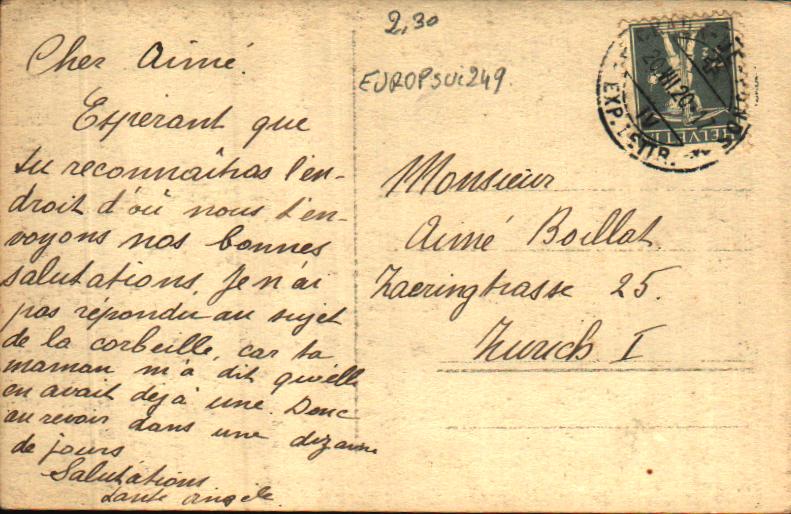 2,30
EUROPSUI249
Cher Aimé.
Espérant que
tu reconnaîtras l'en-
droit d'où nous t'en-
voyons nos bonnes
salutations. Je n'ai
pas répondu au sujet
de la corbeille, car ta
maman m'a dit qu'elle
en avait déjà une. Donc
au revoir dans une dizaine
de jours
Salutations
tante Angèle
Monsieur
Aimé Boillat
Zaeringtrasse 25.
Zurich I
HELVETIA
EXP. LETTR.
IV